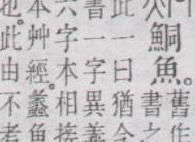 鮦魚。舊作
書之
此一曰猶今
書一字異義
六字本相接
本艸經。蠡魚
也此由不者